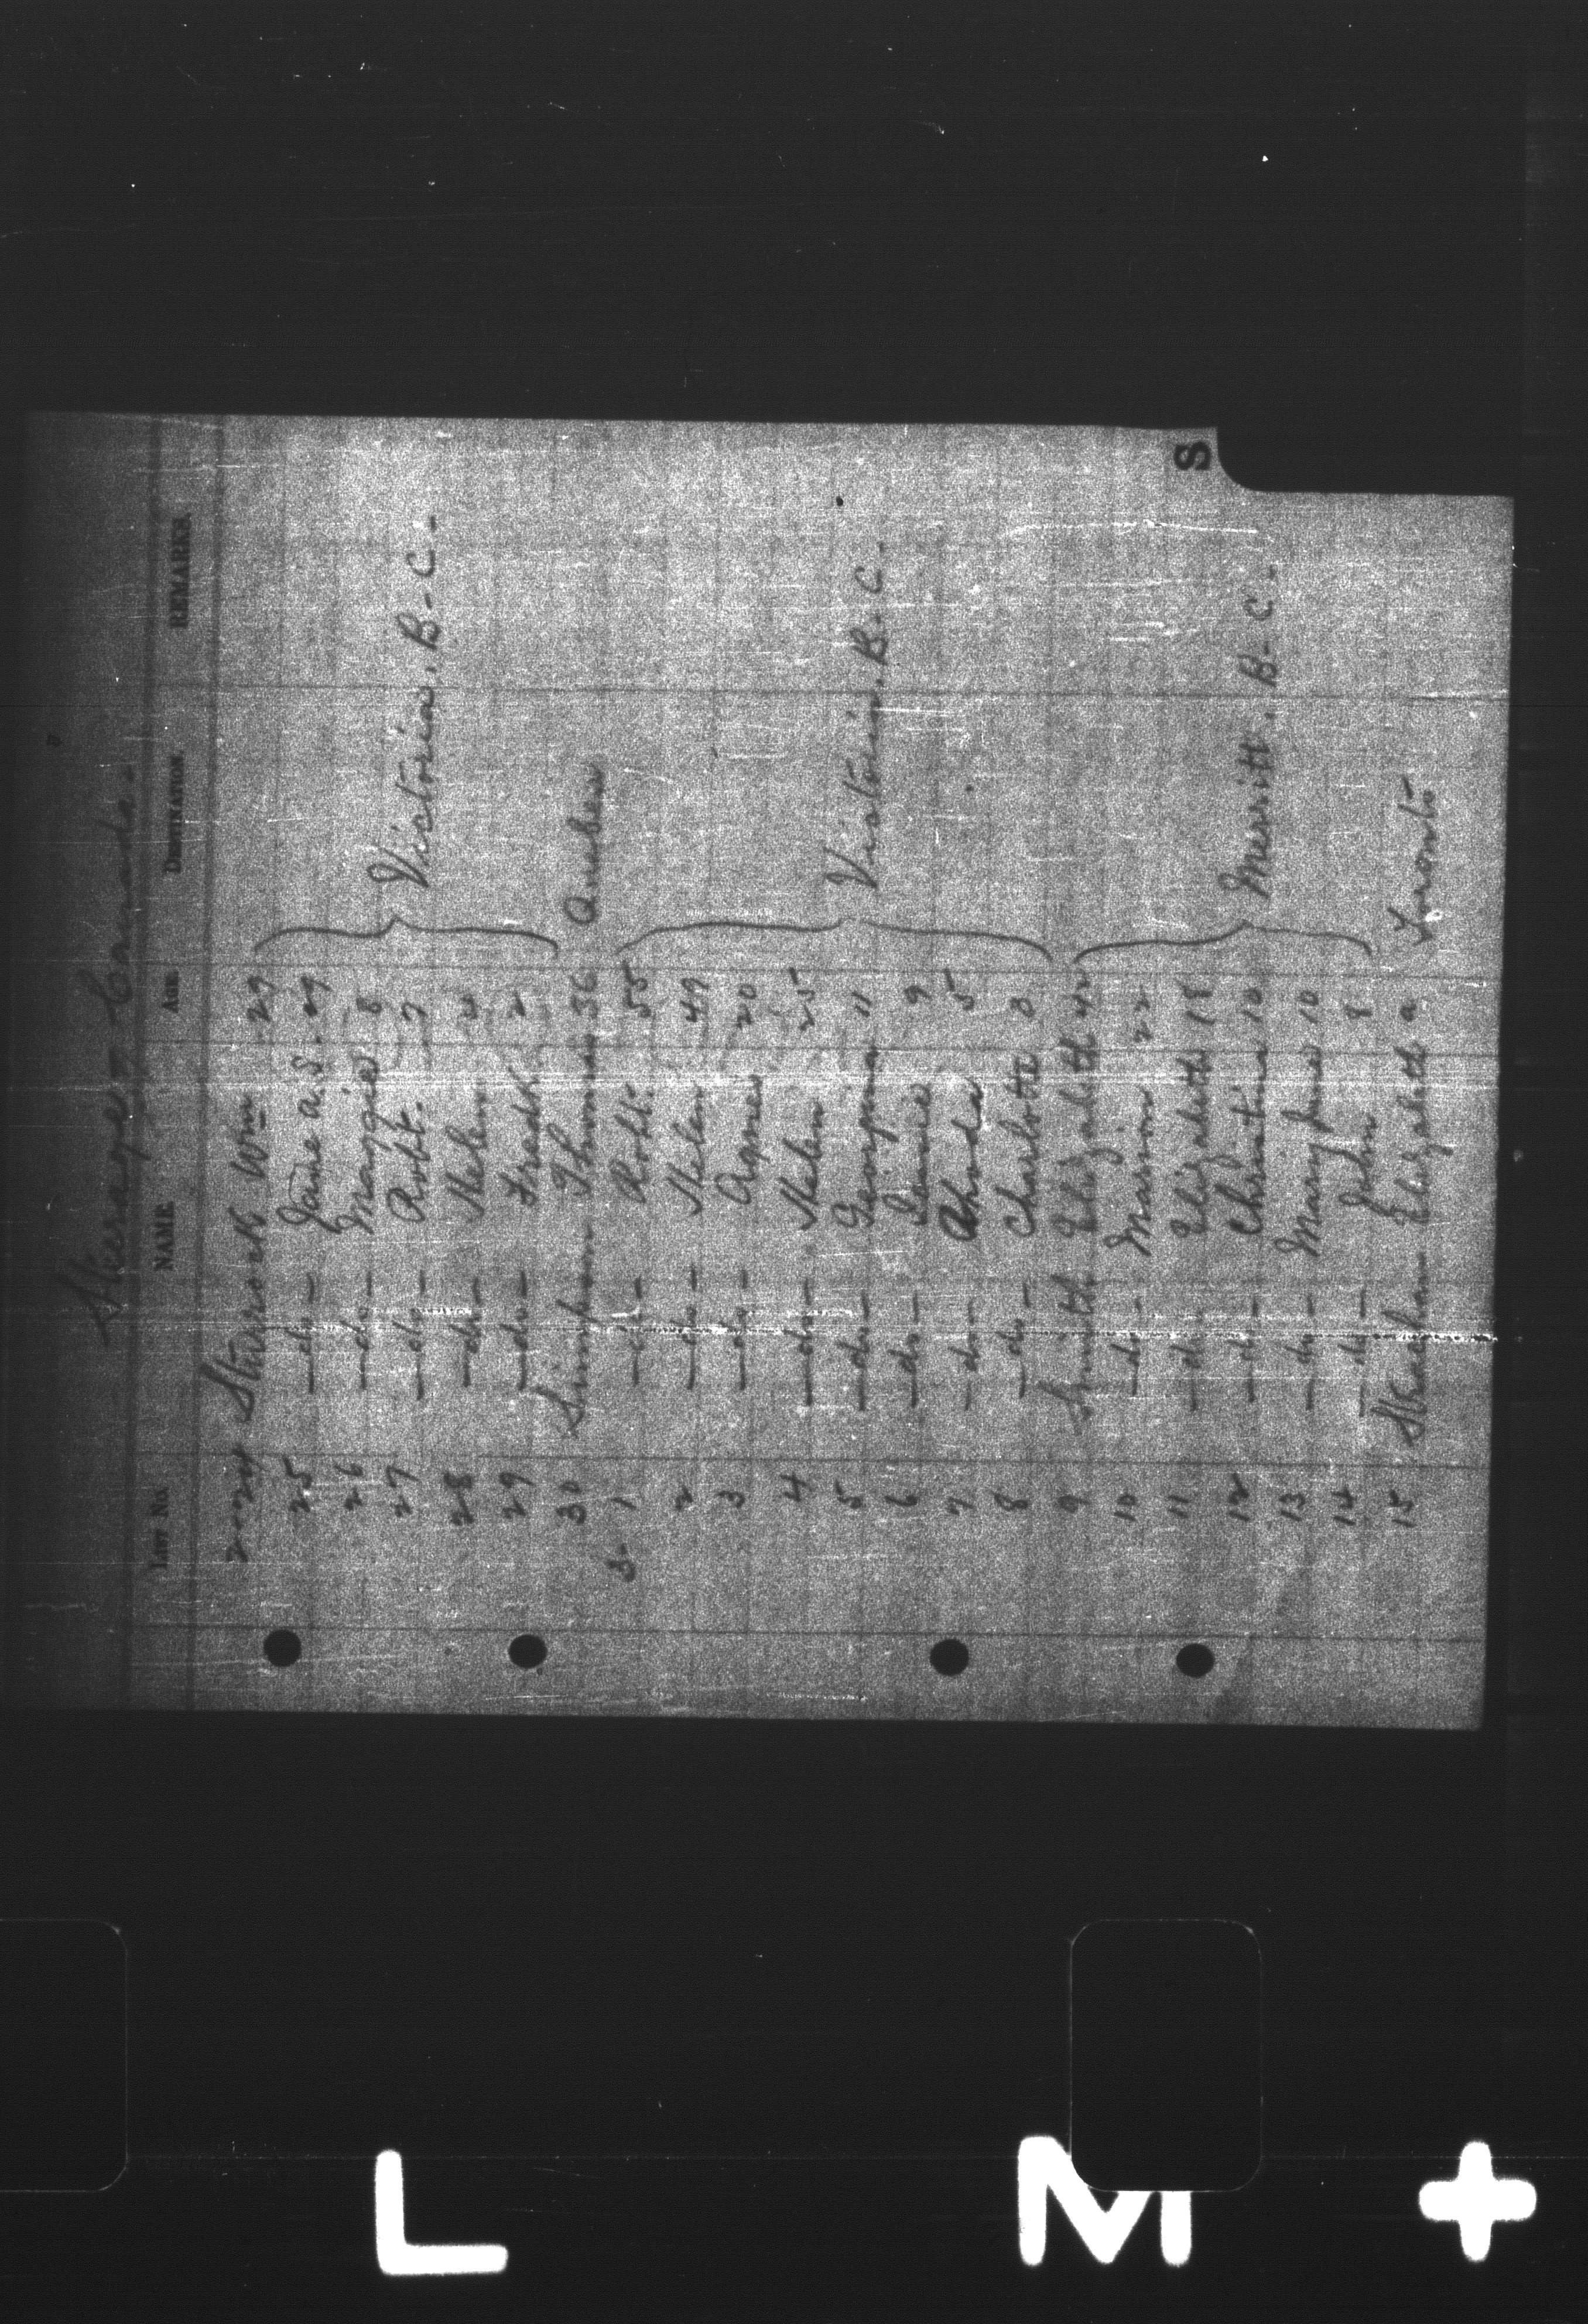 Steerage - Canada -
Line No. NAME AGE DESTINATION. REMARKS.
2024 Sturrock Wm 29
25 - do - Jane A.S. 29
26 - do - Maggie 8
27 - do - Robt. 7 Victoria, B-C-
28 - do - Helen 4
29 - do - Fredk 2
30 Simpson Thomas 36 Quebec
S- 1 - do - Robt. 55
2 - do - Helen 49
3 - do - Agnes 20
4 - do - Helen 25
5 - do - Georgina 11 Victoria, B-C-
6 - do - 9
7 - do - Rhoda 5
8 - do - Charlotte 3
9 Smith Elizabeth 42
10 - do - Marion 22
11 - do - Elizabeth 18
12 - do - Christina 12 Merritt, B-C-
13 - do - Mary Jane 10
14 - do - John 8
15 Strachan Elizabeth a Toronto
S
L M +